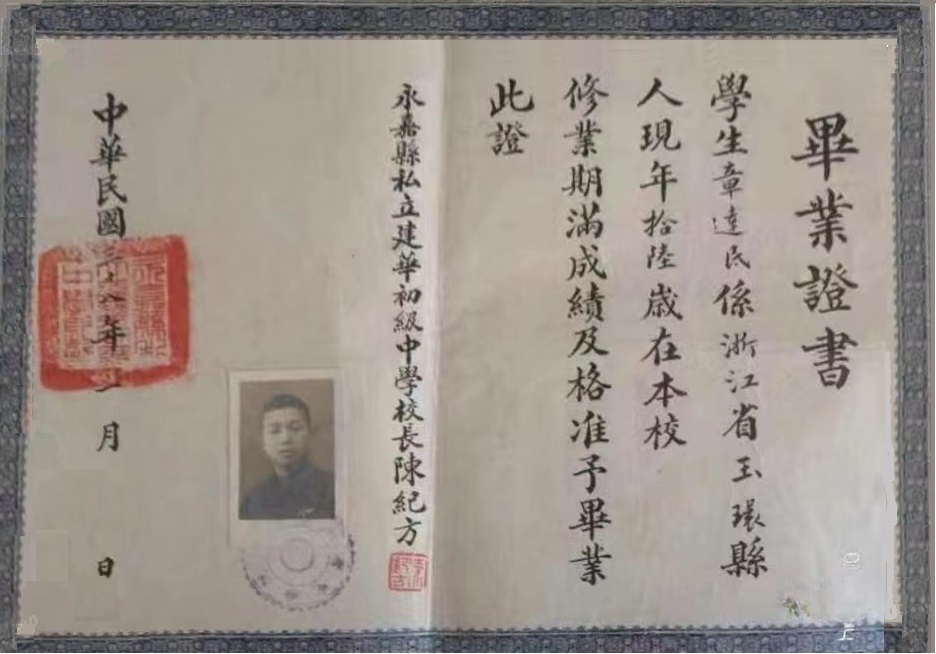 畢業證書
學生章達民係浙江省玉環縣
人現年拾陸歲在本校
修業期滿成績及格准予畢業
此證
永嘉縣私立建華初級中學校長陳紀方
中華民國三十八年一月 日